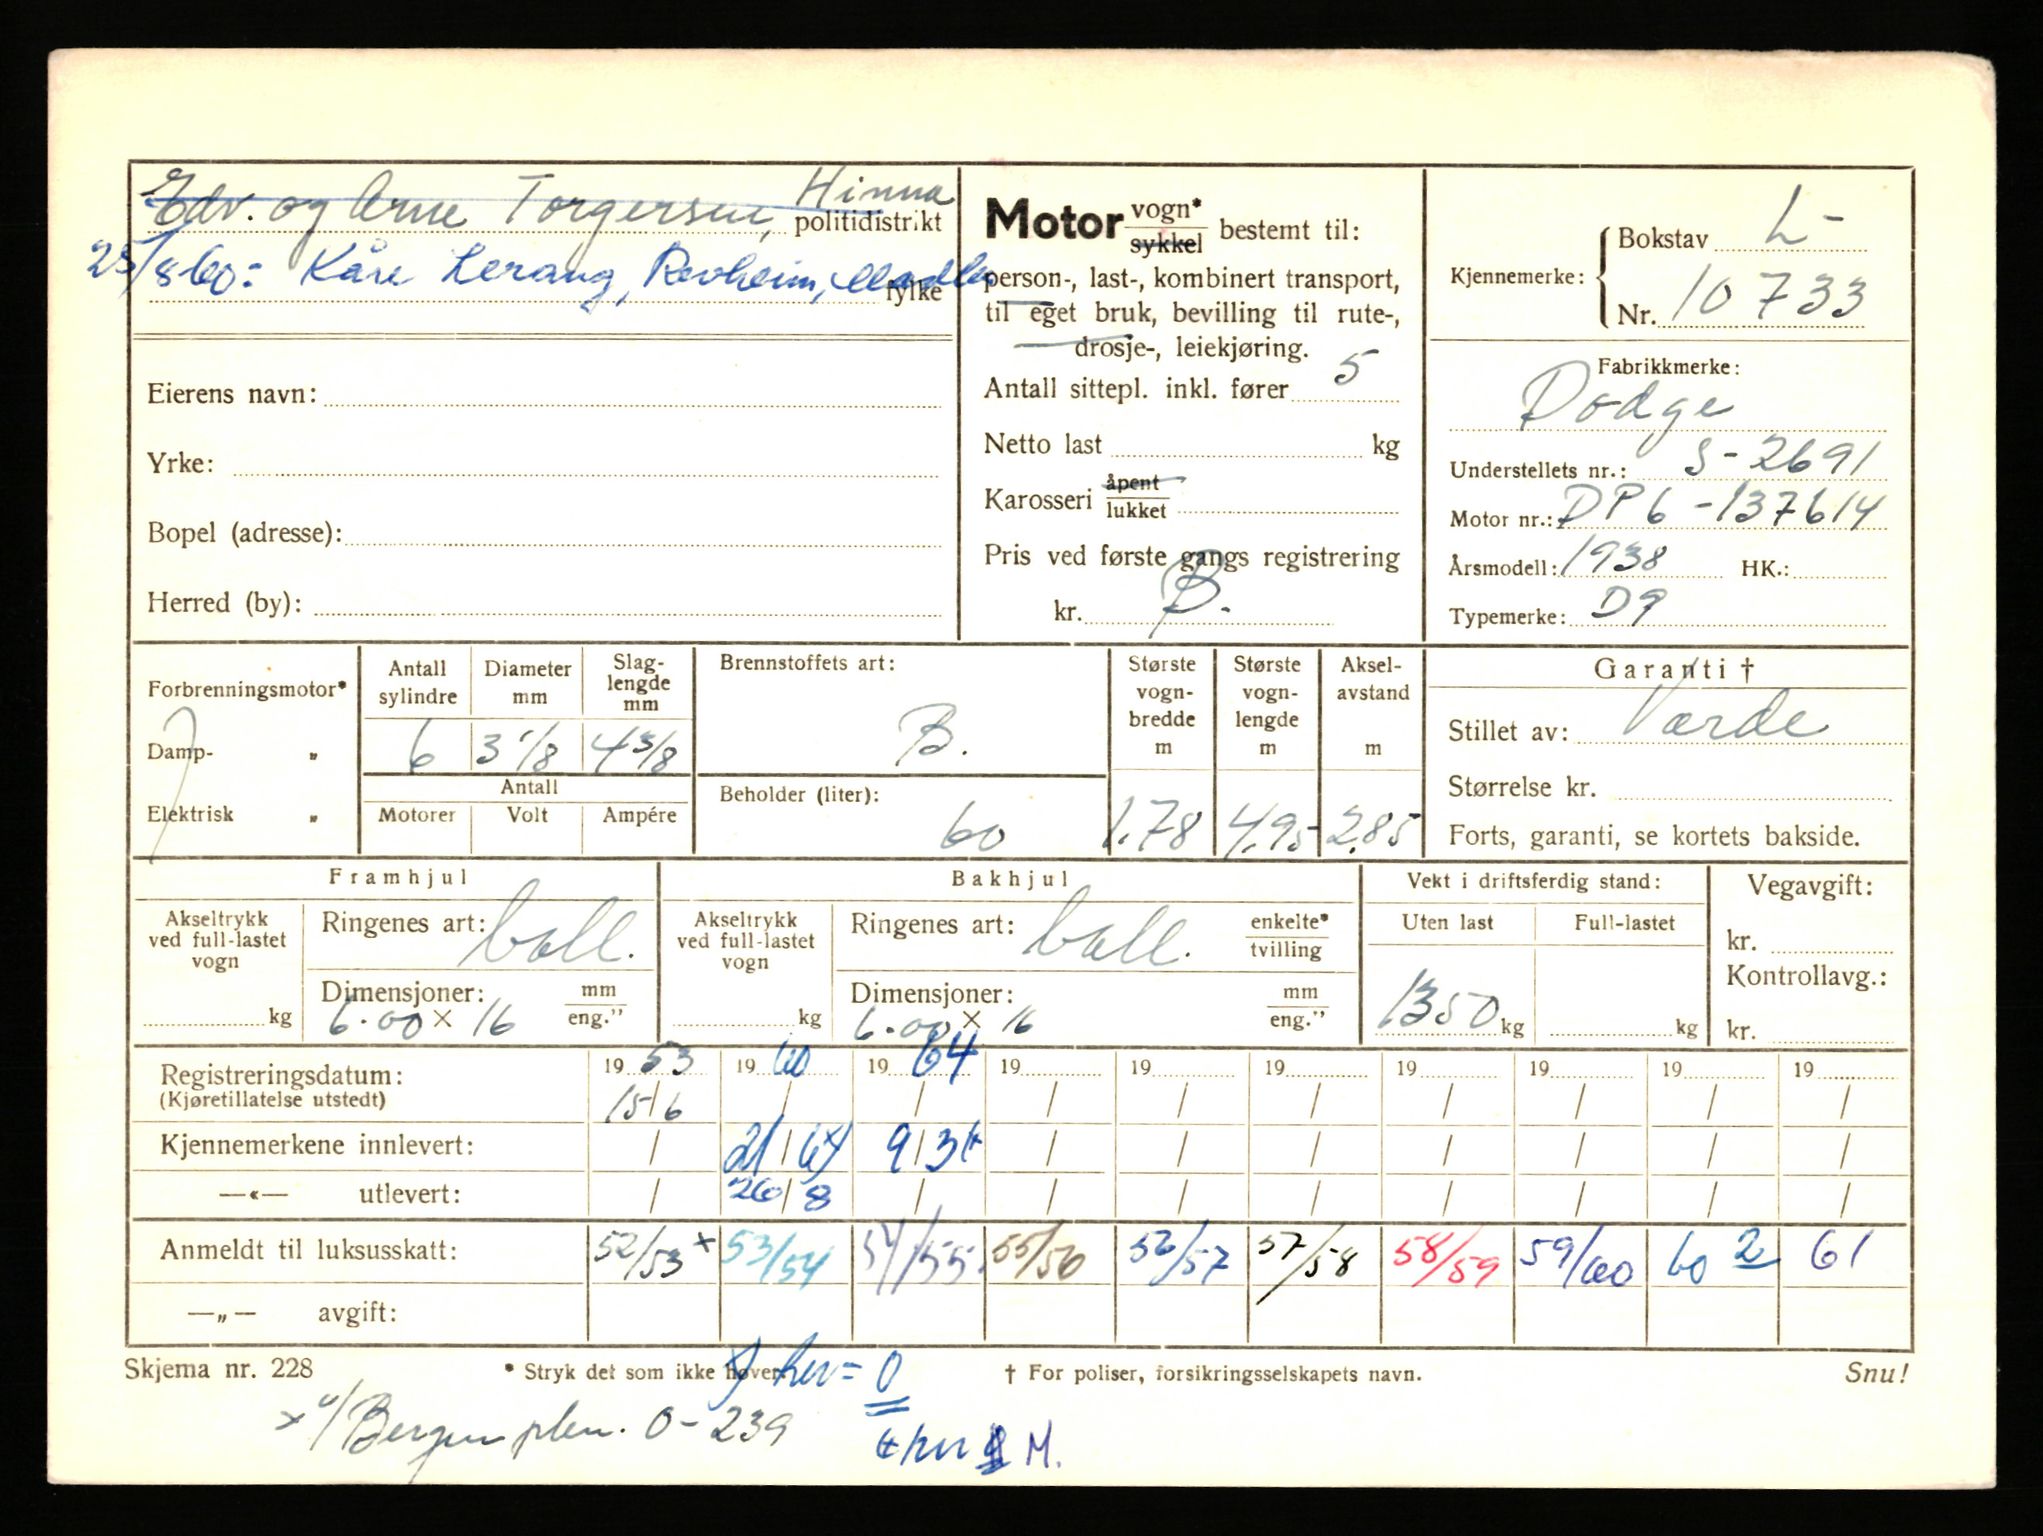 Edv. og Arne Torgersen, Hinna
politidistrikt
25/8 60: Kåre Lerang, Revheim, Madla
fylke
Eierens navn:
Yrke:
Bopel (adresse):
Herred (by):
Motor vogn*
sykkel bestemt til:
person-, last-, kombinert transport,
til eget bruk, bevilling til rute-,
drosje-, leiekjøring.
Antall sittepl. inkl. fører 5
Netto last kg
Karosseri åpent
lukket
Pris ved første gangs registrering
kr. B.
Kjennemerke: Bokstav L-
Nr. 10733
Fabrikkmerke:
Dodge
Understellets nr.: S-2691
Motor nr.: DP6-137614
Årsmodell: 1938 HK.:
Typemerke: D9
Forbrenningsmotor*
Damp- "
Elektrisk "
Antall sylindre Diameter mm Slag-lengde mm
6 3 1/8 4 3/8
Antall
Motorer Volt Ampére
Brennstoffets art:
B.
Beholder (liter):
60
Største vogn-bredde m
1.78
Største vogn-lengde m
4,95
Aksel-avstand m
2.85
Garanti †
Stillet av: Varde
Størrelse kr.
Forts, garanti, se kortets bakside.
Framhjul
Akseltrykk ved full-lastet vogn
kg
Ringenes art: ball.
Dimensjoner: mm
6.00 x 16 eng."
Bakhjul
Akseltrykk ved full-lastet vogn
kg
Ringenes art: ball. enkelte*
tvilling
Dimensjoner: mm
6.00 x 16 eng."
Vekt i driftsferdig stand:
Uten last Full-lastet
1350 kg kg
Vegavgift:
kr.
Kontrollavg.:
kr.
Registreringsdatum: 19 53 19 60 19 64 19 19 19 19 19 19 19
(Kjøretillatelse utstedt) 15/6 / / / / / / / / /
Kjennemerkene innlevert: / 21/6 9/3 / / / / / / /
—«— utlevert: / 26/8 / / / / / / / /
Anmeldt til luksusskatt: 52/53 x 53/54 54/55 55/56 56/57 57/58 58/59 59/60 60 2 61
—„— avgift:
Skjema nr. 228 * Stryk det som ikke høver. † For poliser, forsikringsselskapets navn. Snu!
her = 0
x Bergen O-239
M.